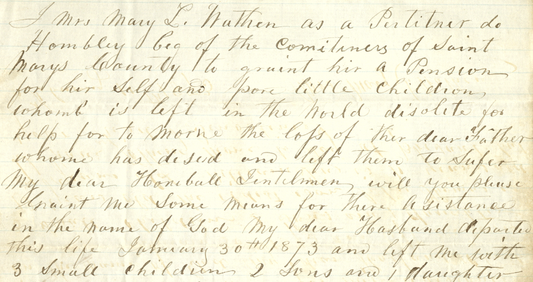 I Mrs Mary L. Wathen as a Pertitner do
Hombley beg of the Comitiners of Saint
Marys County to graint hir a Pension
for hir Self and pore little Children
whomb is left in the World disolite for
help for to morne the loss of ther dear Father
whome has desesd and left them to Sufer
My dear Honebull Jentelmen will you please
Graint me Some means for there Asistance
in the name of God My dear Husband departed
this life January 30th 1873 and left me with
3 Small Children 2 Sons and 1 daughter